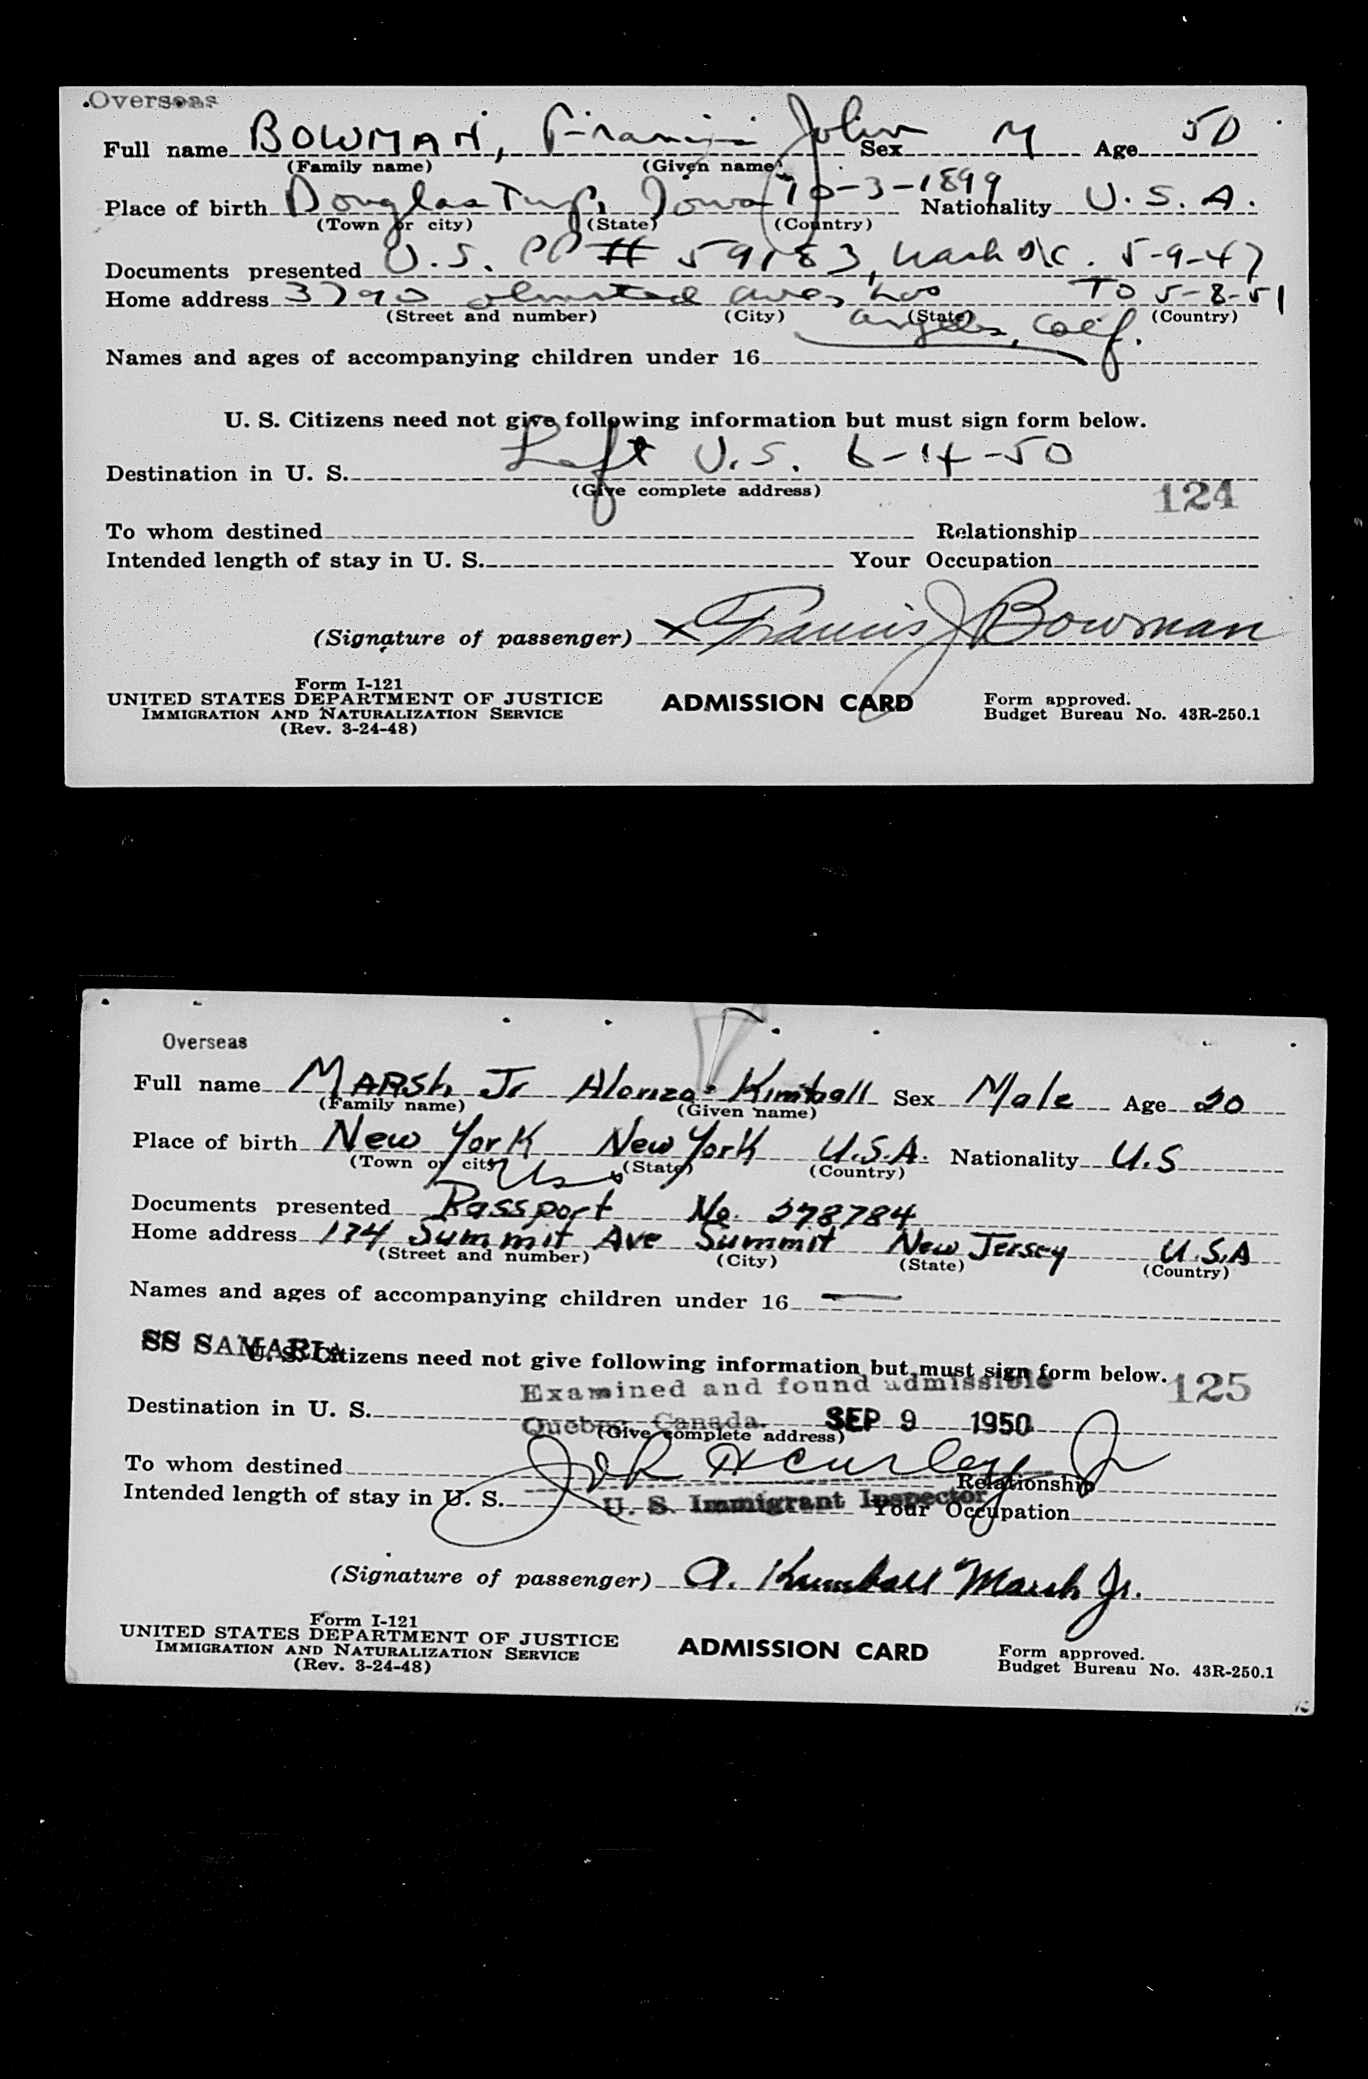 Overseas
Full name BOWMAN, Francis John Sex M Age 50
(Family name) (Given name)
Place of birth Douglas Twp, Iowa 10-3-1899 Nationality U.S.A.
(Town or city) (State) (Country)
Documents presented U.S. PP # 59183, Wash D.C. 5-9-47
Home address 3790 Olmsted Ave, Los TO 5-8-51
(Street and number) (City) (State) (Country)
Angeles, Calif.
Names and ages of accompanying children under 16
U. S. Citizens need not give following information but must sign form below.
Left U.S. 6-14-50
Destination in U. S.
(Give complete address)
124
To whom destined Relationship
Intended length of stay in U. S. Your Occupation
(Signature of passenger) x Francis J Bowman
Form I-121
UNITED STATES DEPARTMENT OF JUSTICE ADMISSION CARD Form approved.
IMMIGRATION AND NATURALIZATION SERVICE Budget Bureau No. 43R-250.1
(Rev. 3-24-48)
Overseas
Full name MARSh Jr Alonzo Kimball Sex Male Age 20
(Family name) (Given name)
Place of birth New York New York U.S.A. Nationality U.S
(Town or city) (State) (Country)
Documents presented Passport No. 278784
Home address 174 Summit Ave Summit New Jersey U.S.A
(Street and number) (City) (State) (Country)
Names and ages of accompanying children under 16 —
SS SAMARIA
U. S. Citizens need not give following information but must sign form below.
125
Examined and found admissible
Destination in U. S. Quebec, Canada. SEP 9 1950
(Give complete address)
To whom destined Relationship
Intended length of stay in U. S. U. S. Immigrant Inspector Your Occupation
(Signature of passenger) A. Kimball Marsh Jr.
Form I-121
UNITED STATES DEPARTMENT OF JUSTICE ADMISSION CARD Form approved.
IMMIGRATION AND NATURALIZATION SERVICE Budget Bureau No. 43R-250.1
(Rev. 3-24-48)